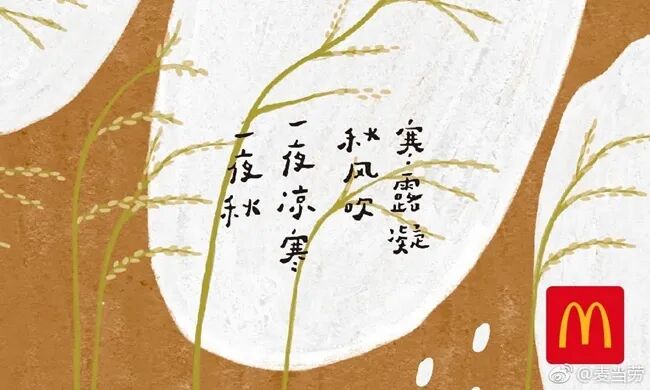 寒露凝
秋风吹
一夜凉寒
一夜秋
@麦当劳